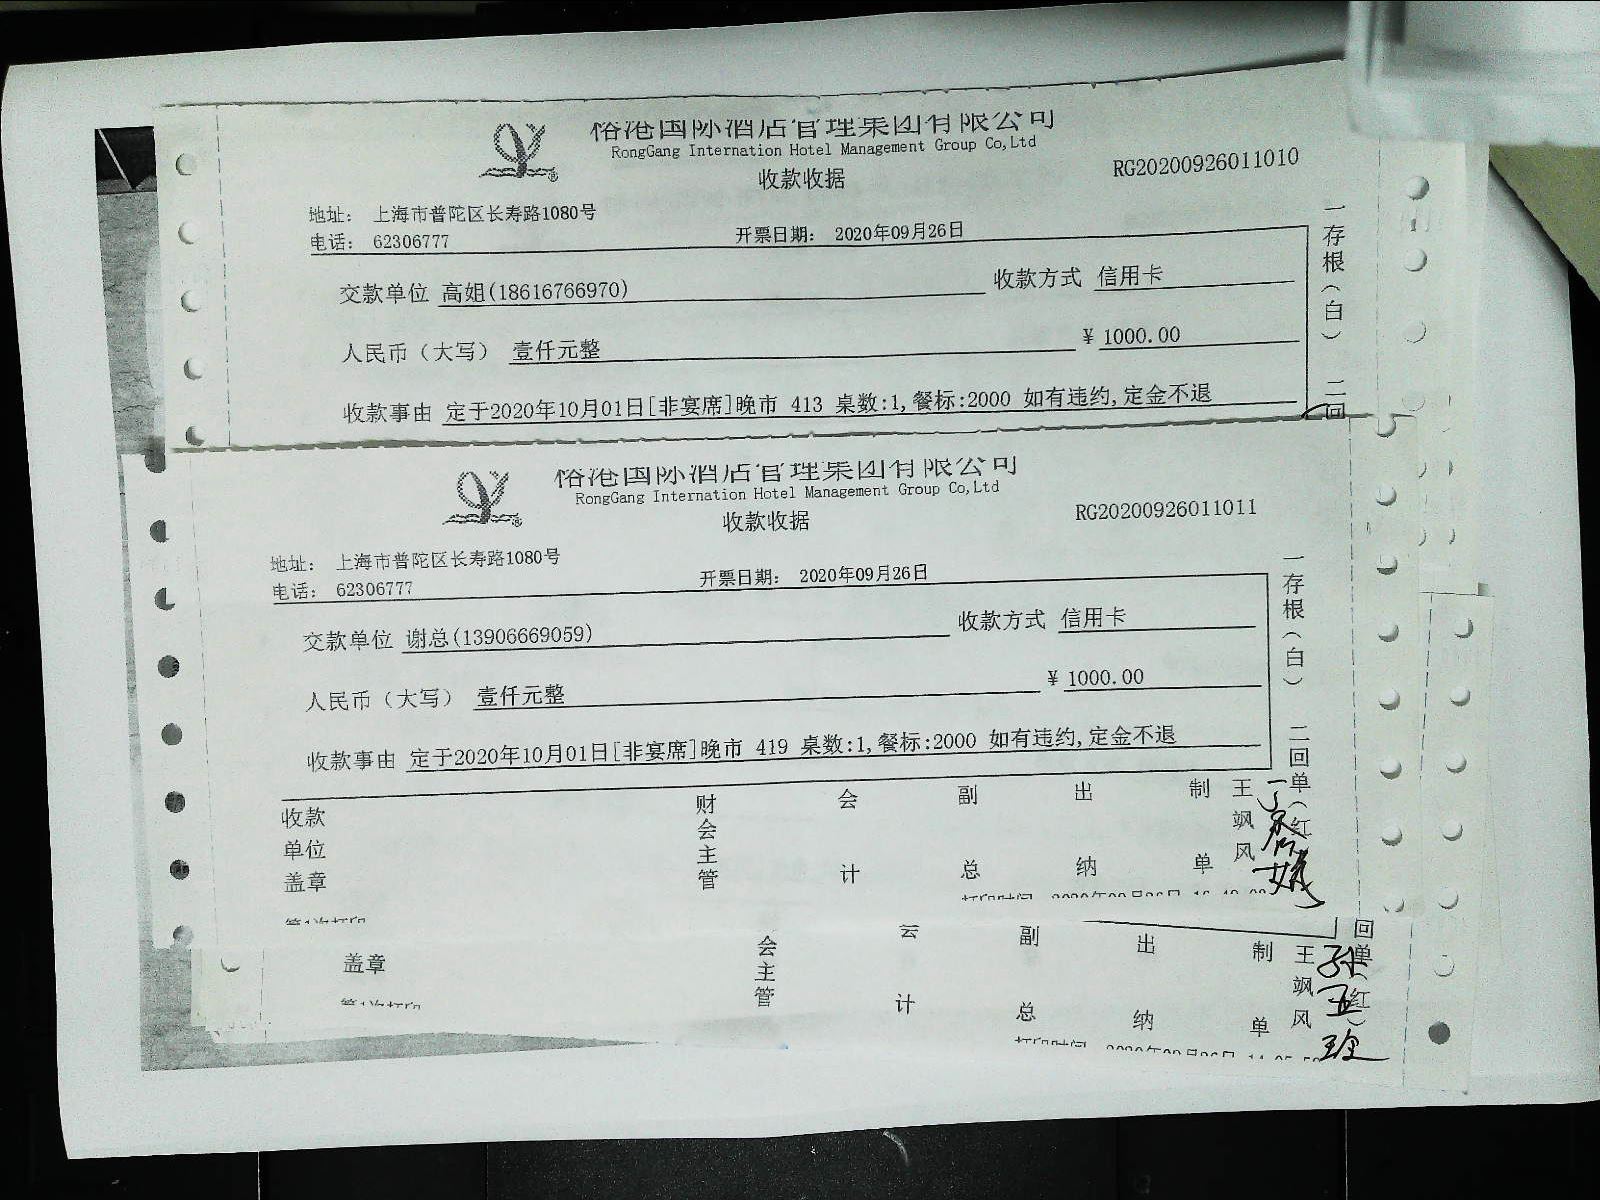 榕港国际酒店管理集团有限公司
RongGang Internation Hotel Management Group Co,Ltd
收款收据
RG20200926011010
地址： 上海市普陀区长寿路1080号
电话： 62306777
开票日期： 2020年09月26日
交款单位 高姐(18616766970)
收款方式 信用卡
人民币（大写） 壹仟元整
¥ 1000.00
收款事由 定于2020年10月01日[非宴席]晚市 413 桌数:1,餐标:2000 如有违约,定金不退
一存根（白） 二回
榕港国际酒店管理集团有限公司
RongGang Internation Hotel Management Group Co,Ltd
收款收据
RG20200926011011
地址： 上海市普陀区长寿路1080号
电话： 62306777
开票日期： 2020年09月26日
交款单位 谢总(13906669059)
收款方式 信用卡
人民币（大写） 壹仟元整
¥ 1000.00
收款事由 定于2020年10月01日[非宴席]晚市 419 桌数:1,餐标:2000 如有违约,定金不退
一存根（白） 二回单（红）
收款单位盖章
财会主管
会计
副总
出纳
制单
王飒风
第1次打印
盖章
会主管
会计
副总
出纳
制单
王飒风
回单（红）
第1次打印